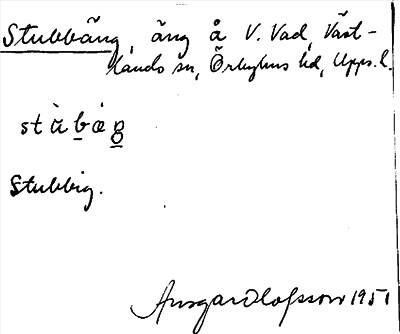 Stubbäng, äng å V. Vad, Väst-
lands sn, Örbyhus hd, Upps. l.
stùbǝg
Stubbig.
Ansgar Olofsson 1951